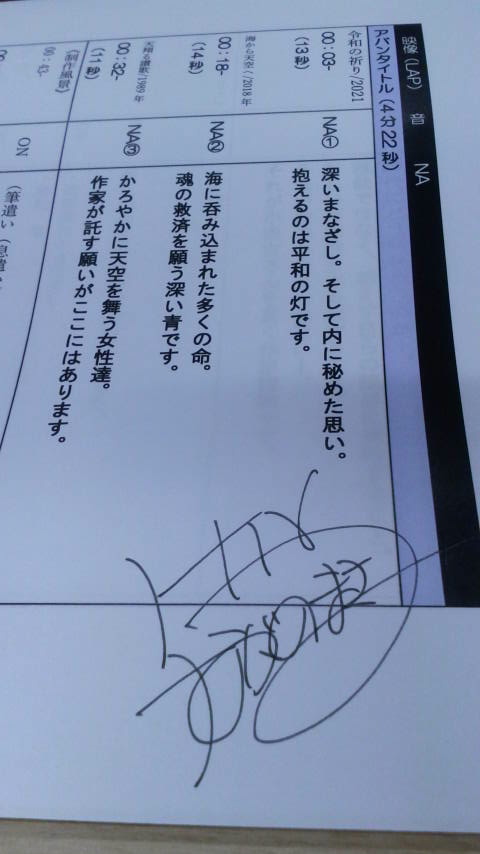 映像（LAP） 音 NA
アバンタイトル（4分22秒）
令和の祈り/2021
00:03-
（13秒）
NA①
深いまなざし。そして内に秘めた思い。
抱えるのは平和の灯です。
海から天空へ/2018年
00:18-
（14秒）
NA②
海に呑み込まれた多くの命。
魂の救済を願う深い青です。
天翔る讃歌/1989年
00:32-
（11秒）
NA③
かろやかに天空を舞う女性達。
作家が託す願いがここにはあります。
（制作風景）
00:43-
ON
（筆遣い（息遣い